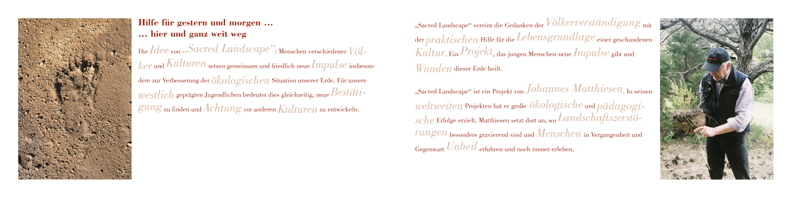 Hilfe für gestern und morgen ...
... hier und ganz weit weg
Die Idee von „Sacred Landscape“: Menschen verschiedener Völ-
ker und Kulturen setzen gemeinsam und friedlich neue Impulse insbeson-
dere zur Verbesserung der ökologischen Situation unserer Erde. Für unsere
westlich geprägten Jugendlichen bedeutet dies gleichzeitig, neue Bestäti-
gung zu finden und Achtung vor anderen Kulturen zu entwickeln.
„Sacred Landscape“ vereint die Gedanken der Völkerverständigung mit
der praktischen Hilfe für die Lebensgrundlage einer geschundenen
Kultur. Ein Projekt, das jungen Menschen neue Impulse gibt und
Wunden dieser Erde heilt.
„Sacred Landscape“ ist ein Projekt von Johannes Matthiesen. In seinen
weltweiten Projekten hat er große ökologische und pädagogi-
sche Erfolge erzielt. Matthiesen setzt dort an, wo Landschaftszerstö-
rungen besonders gravierend sind und Menschen in Vergangenheit und
Gegenwart Unheil erfuhren und noch immer erleben.